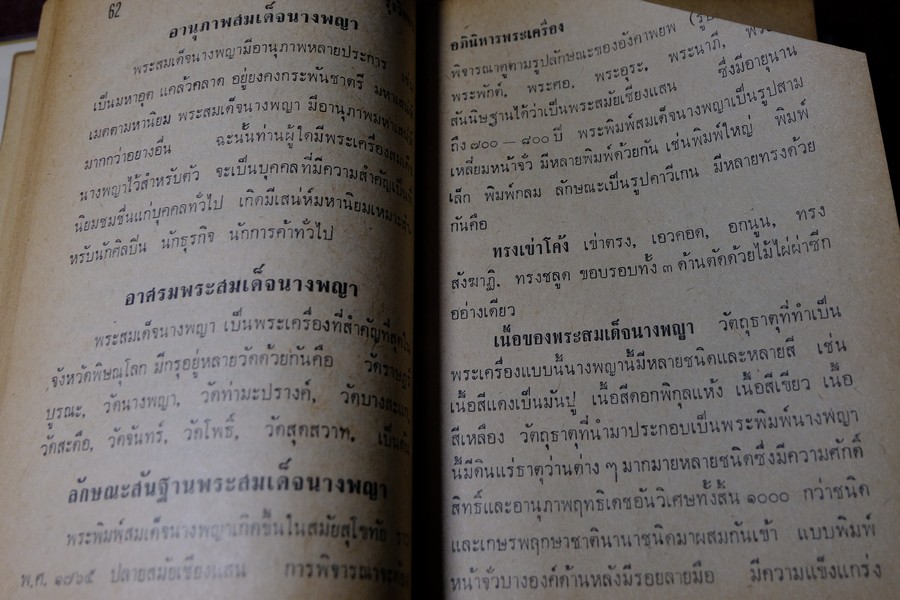 62
อานุภาพสมเด็จนางพญา
พระสมเด็จนางพญามีอานุภาพหลายประการ เช่น
เป็นมหาอุด แคล้วคลาด อยู่ยงคงกระพันชาตรี มหาเสน่ห์
เมตตามหานิยม พระสมเด็จนางพญา มีอานุภาพมหาเสน่ห์
มากกว่าอย่างอื่น ฉะนั้นท่านผู้ใดมีพระเครื่องสมเด็จ
นางพญาไว้สำหรับตัว จะเป็นบุคคลที่มีความสำคัญเป็นที่
นิยมชมชื่นแก่บุคคลทั่วไป เกิดมีเสน่ห์มหานิยมเหมาะสำ
หรับนักศิลปีน นักธุรกิจ นักการค้าทั่วไป
อาศรมพระสมเด็จนางพญา
พระสมเด็จนางพญา เป็นพระเครื่องที่สำคัญที่สุดใน
จังหวัดพิษณุโลก มีกรุอยู่หลายวัดด้วยกันคือ วัดราษฎร์
บูรณะ, วัดนางพญา, วัดท่ามะปรางค์, วัดบางสะแก,
วัดสะตือ, วัดจันทร์, วัดโพธิ์, วัดสุดสวาท, เป็นต้น
ลักษณะสันฐานพระสมเด็จนางพญา
พระพิมพ์สมเด็จนางพญาเกิดขึ้นในสมัยสุโขทัย ราว
พ.ศ. ๑๘๖๕ ปลายสมัยเชียงแสน การพิจารณาจะต้อง
อภินิหารพระเครื่อง
พิจารณาดูตามรูปลักษณะขององค์าพยพ (รูป
พระพักต์, พระศอ, พระอุระ, พระนาภี,
สันนิษฐานได้ว่าเป็นพระสมัยเชียงแสน ซึ่งมีอายุนาน
ถึง ๗๐๐ — ๘๐๐ ปี พระพิมพ์สมเด็จนางพญาเป็นรูปสาม
เหลี่ยมหน้าจั่ว มีหลายพิมพ์ด้วยกัน เช่นพิมพ์ใหญ่ พิมพ์
เล็ก พิมพ์กลม ลักษณะเป็นรูปคาวีเกน มีหลายทรงด้วย
กันคือ
ทรงเข่าโค้ง เข่าตรง, เอวคอด, อกนูน, ทรง
สังฆาฏิ, ทรงชลูด ขอบรอบทั้ง ๓ ด้านตัดด้วยไม้ไผ่ผ่าซีก
อย่างเดียว
เนื้อของพระสมเด็จนางพญา วัตถุธาตุที่ทำเป็น
พระเครื่องแบบนี้นางพญานี้มีหลายชนิดและหลายสี เช่น
เนื้อสีแดงเป็นมันปู เนื้อสีดอกพิกุลแห้ง เนื้อสีเขียว เนื้อ
สีเหลือง วัตถุธาตุที่นำมาประกอบเป็นพระพิมพ์นางพญา
นี้มีดินแร่ธาตุว่านต่าง ๆ มากมายหลายชนิดซึ่งมีความศักดิ์
สิทธิ์และอานุภาพฤทธิเดชอันวิเศษทั้งสิ้น ๑๐๐๐ กว่าชนิด
และเกษรพฤกษาชาตินานาชนิดมาผสมกันเข้า แบบพิมพ์
หน้าจั่วบางองค์ด้านหลังมีรอยลายมือ มีความแข็งแกร่ง